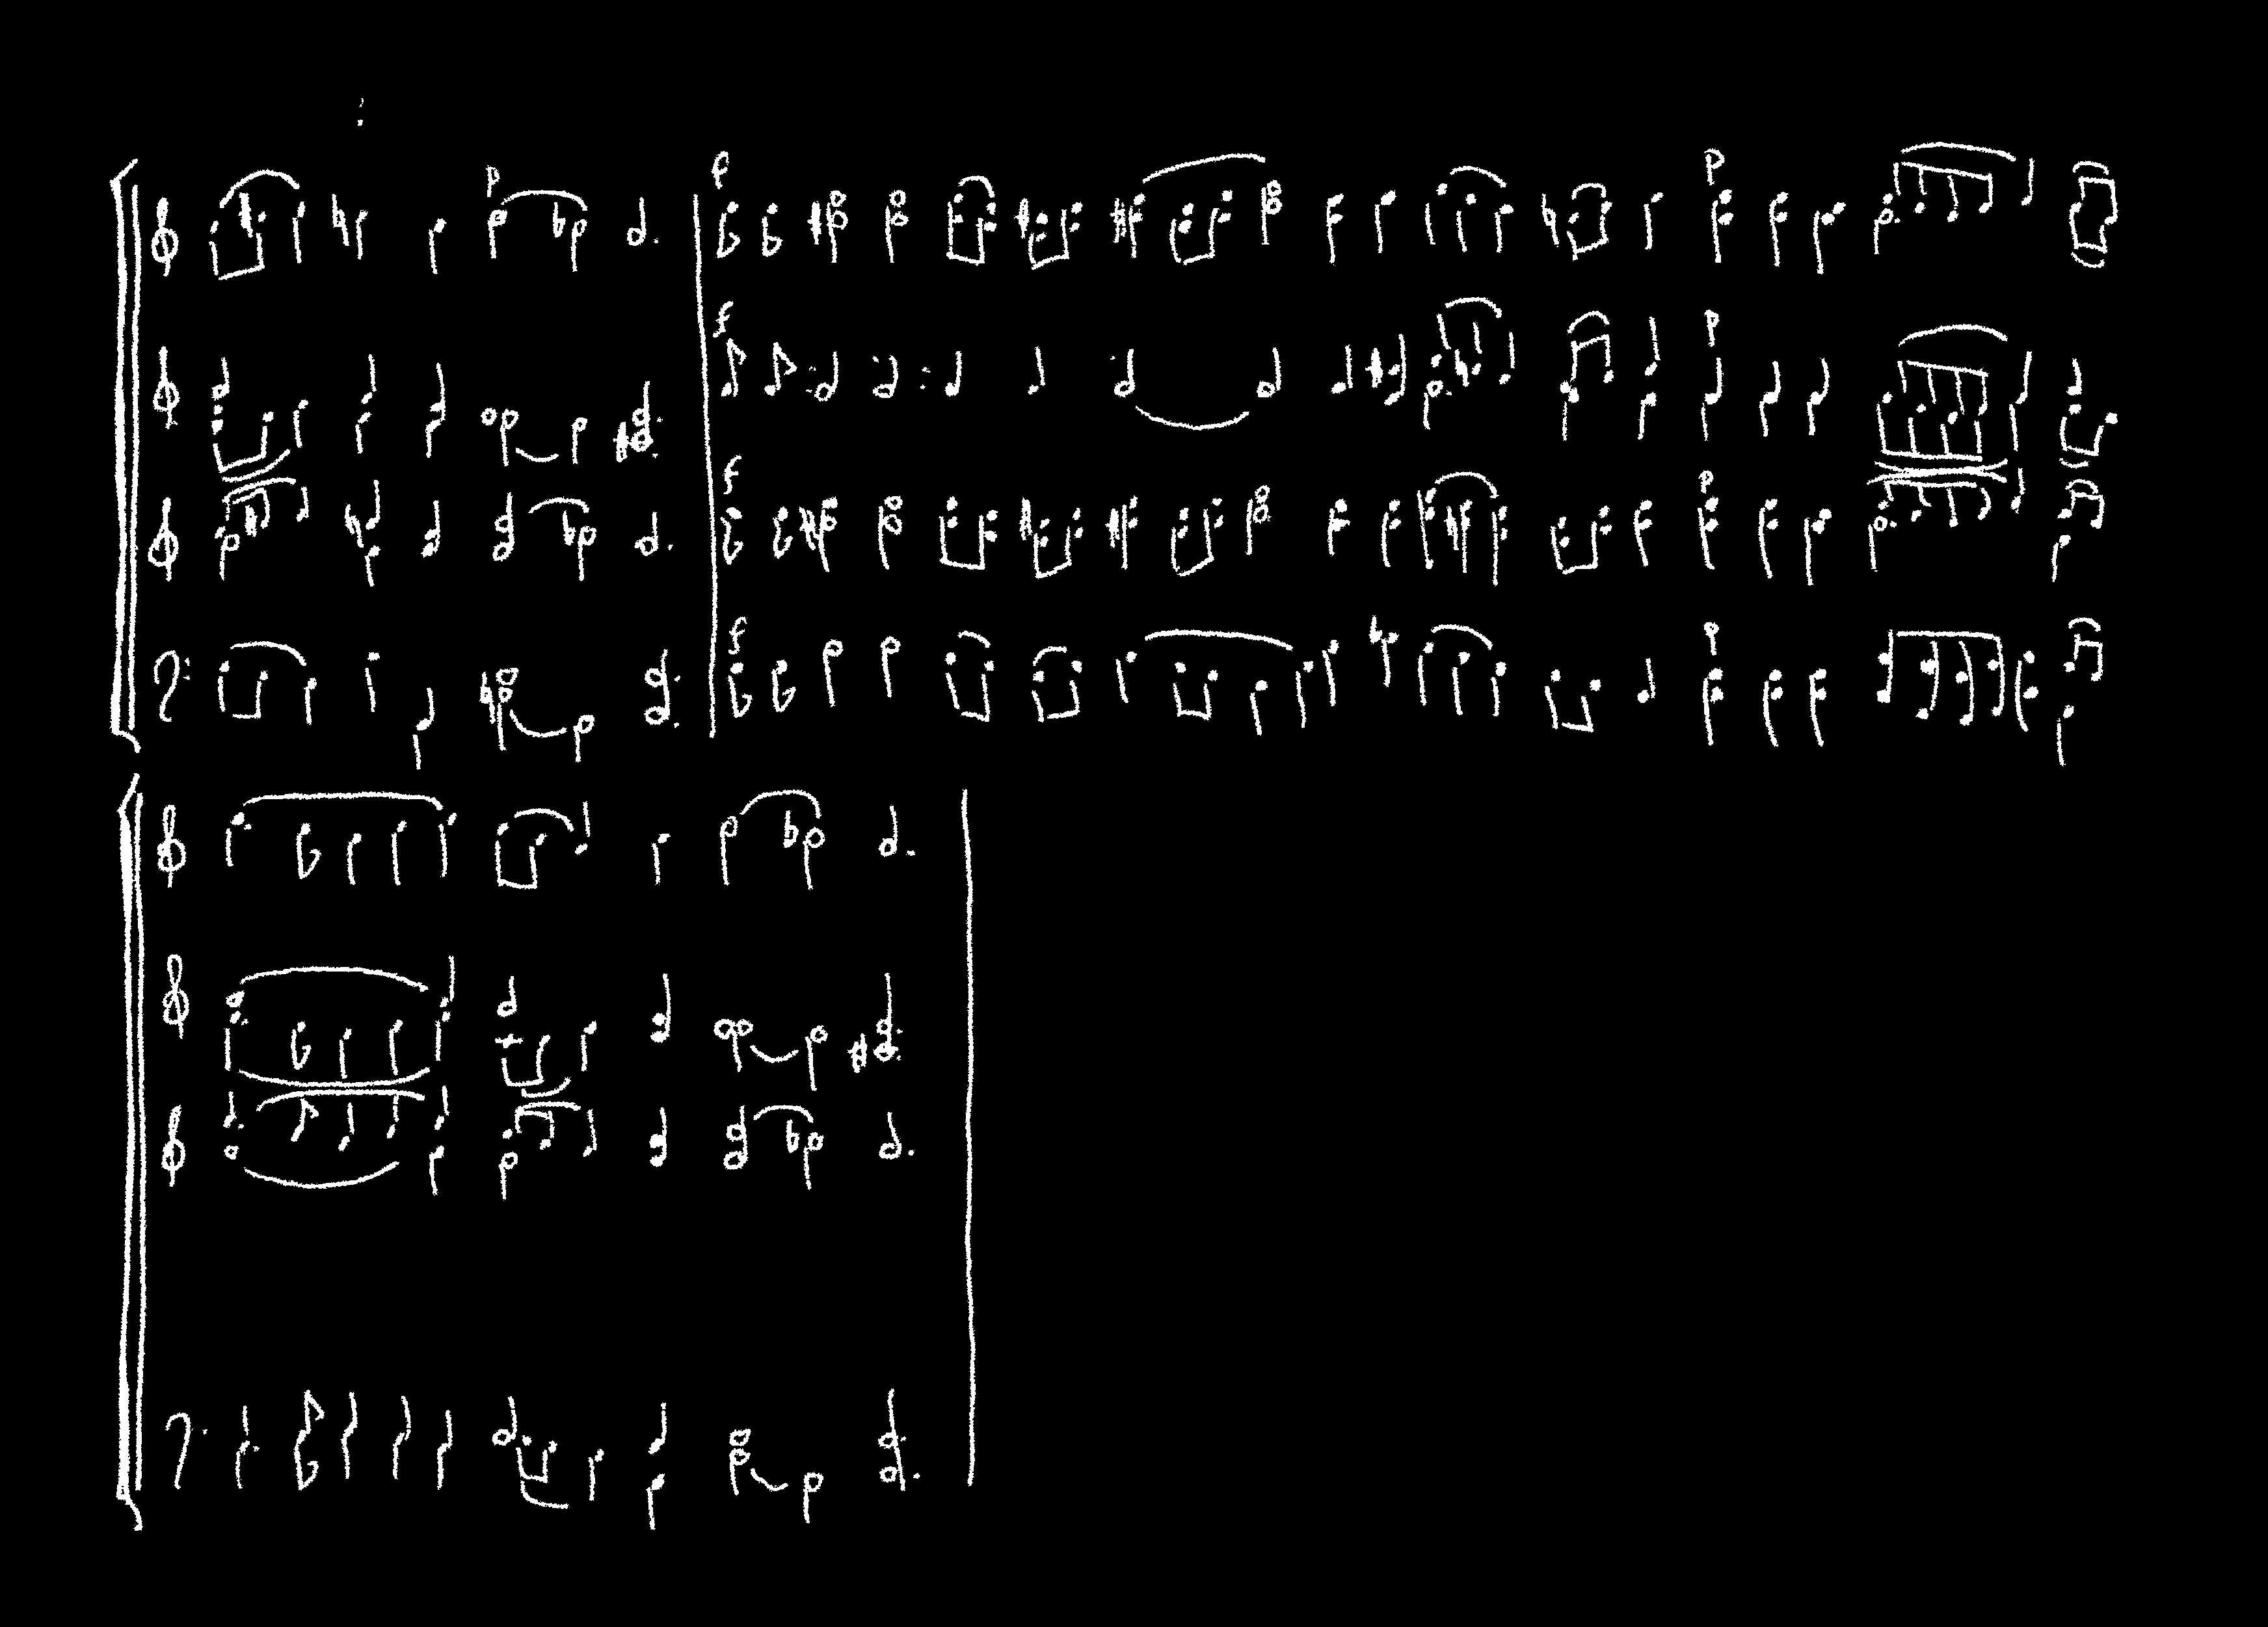 p f p
f p
f p
f p